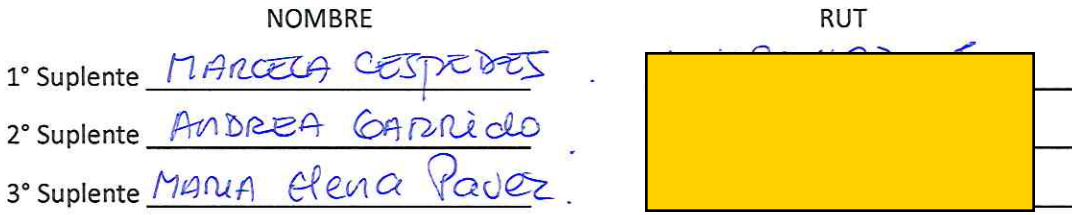 NOMBRE RUT
1° Suplente MARCELA CESPEDES .
2° Suplente ANDREA GARRIDO
3° Suplente MARIA Elena Pavez .